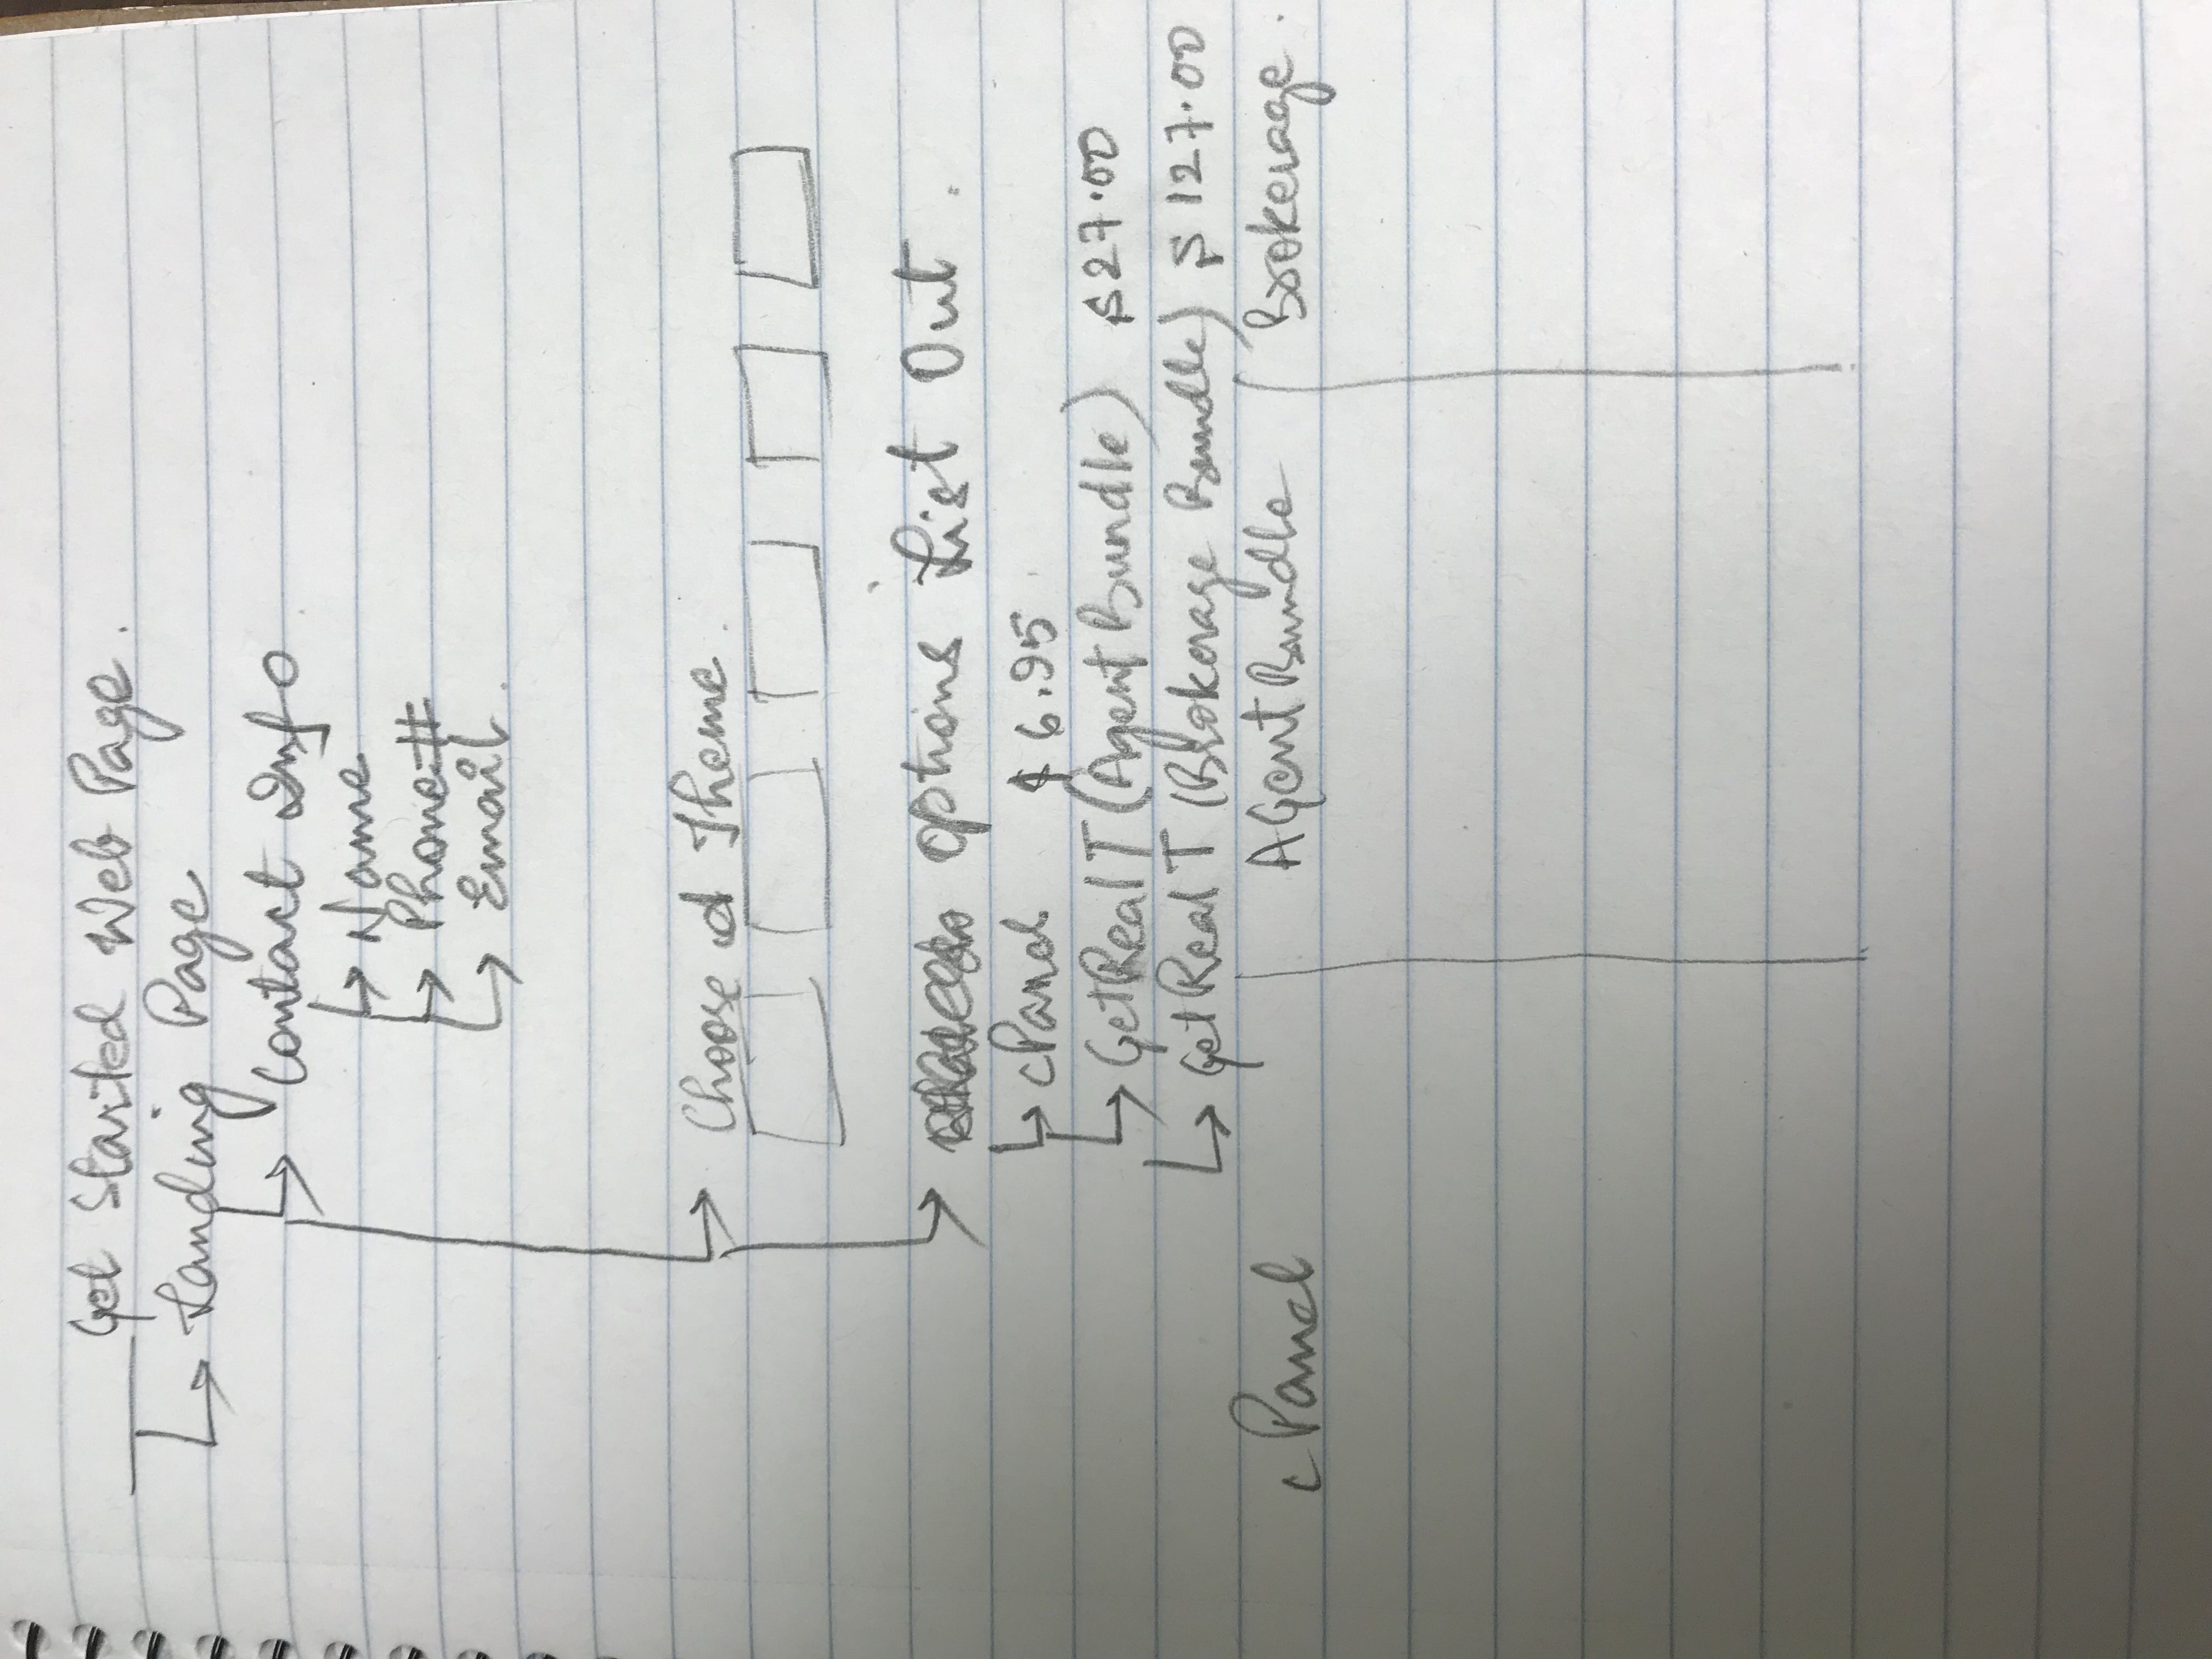 Get Started Web Page.
Landing Page
Contact Info
Name
Phone#
Email.
Choose A Theme.
Options List Out.
cPanel $6.95
GetRealT (Agent Bundle) $27.00
GetRealT (Brokerage Bundle) $127.00
cPanel AGent Bundle Brokerage.